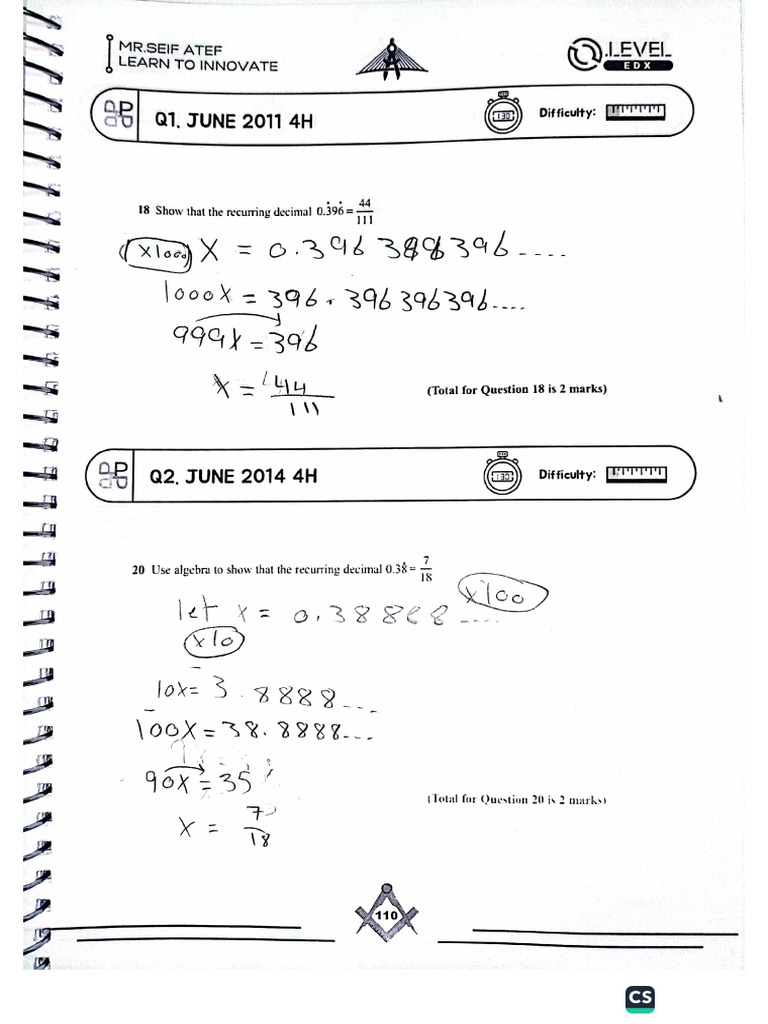 MR.SEIF ATEF
LEARN TO INNOVATE
.LEVEL
EDX
Q1. JUNE 2011 4H
1:30
Difficulty:
18 Show that the recurring decimal 0.3̇96̇ = 44/111
×1000 X = 0.396 396 396 ....
1000X = 396.396396396....
999X = 396
X = 44/111
(Total for Question 18 is 2 marks)
Q2. JUNE 2014 4H
1:30
Difficulty:
20 Use algebra to show that the recurring decimal 0.38̇ = 7/18
×100
let x = 0.38888 ....
×10
10x = 3.8888....
100X = 38.8888...
90X = 35
X = 7/18
(Total for Question 20 is 2 marks)
110
CS